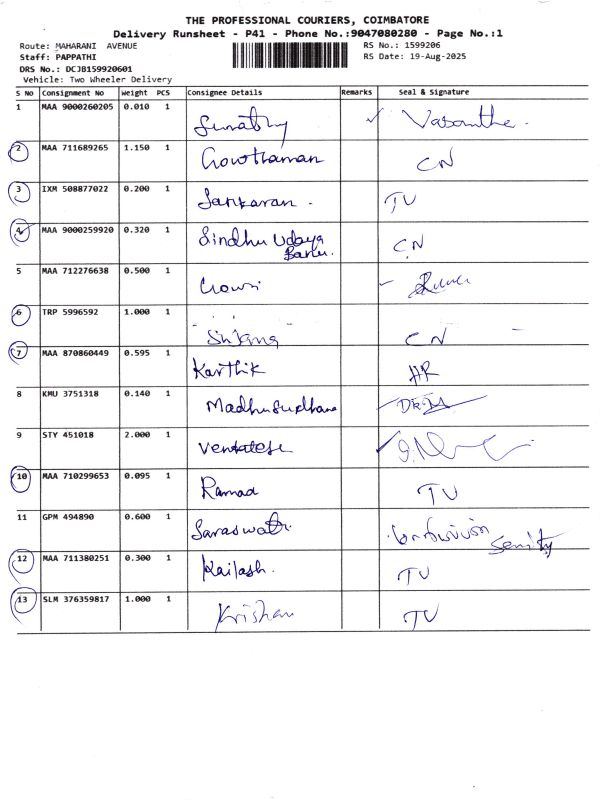 THE PROFESSIONAL COURIERS, COIMBATORE
Delivery Runsheet - P41 - Phone No.:9047080280 - Page No.:1
Route: MAHARANI AVENUE
RS No.: 1599206
Staff: PAPPATHI
RS Date: 19-Aug-2025
DRS No.: DCJB159920601
Vehicle: Two Wheeler Delivery
S No Consignment No Weight PCS Consignee Details Remarks Seal & Signature
1 MAA 9000260205 0.010 1 Vasantha.
2 MAA 711689265 1.150 1 Gowthaman CN
3 IXM 508877022 0.200 1 Sankaran. TV
4 MAA 9000259920 0.320 1 Sindhu Udaya CN
Banu.
5 MAA 712276638 0.500 1 Gowri
6 TRP 5996592 1.000 1 CN
7 MAA 870860449 0.595 1 Karthik HR
8 KMU 3751318 0.140 1 Madhusudhana
9 STY 451018 2.000 1 Venkatese
10 MAA 710299653 0.095 1 Ramad TV
11 GPM 494890 0.600 1 Saraswati
12 MAA 711380251 0.300 1 Kailash. TV
13 SLM 376359817 1.000 1 Krishan TV